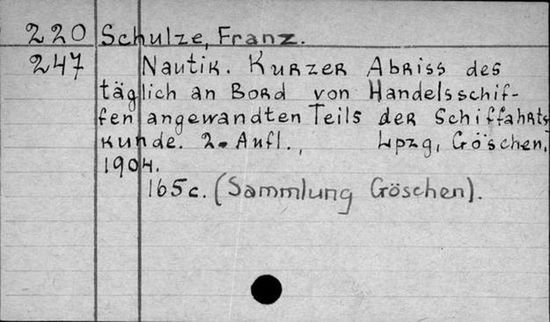 220 Schulze, Franz.
247 Nautik. Kurzer Abriss des
täglich an Bord von Handelsschif-
fen angewandten Teils der Schiffahrts
kunde. 2. Aufl., Lpzg, Göschen,
1904.
165c. (Sammlung Göschen).